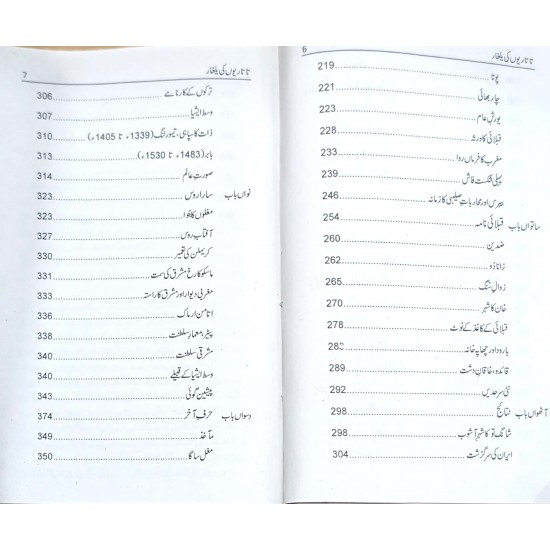 تاتاریوں کی یلغار 6
پوتا 219
چار بھائی 221
یورشِ عام 223
قبلائی کا ورثہ 228
مغرب کا فرماں روا 233
پہلی شکست فاش 239
بیبرس اور محارباتِ صلیبی کا زمانہ 246
ساتواں باب قبلائی نامہ 254
ضدین 260
زناڈو 262
زوالِ سُنگ 265
خان کا شہر 270
قبلائی کے کاغذ کے نوٹ 278
بارود اور چھاپہ خانہ 282
قائدو، خاقانِ دشت 289
نئی سرحدیں 292
آٹھواں باب نتائج 298
شانگ تو کا شہر آشوب 298
ایران کی سرگزشت 304
تاتاریوں کی یلغار 7
ترکوں کے کارنامے 306
وسط ایشیا 307
ذات کا سپاہی، تیمور لنگ (1339ء تا 1405ء) 310
بابر (1483ء تا 1530ء) 313
صورتِ عالم 314
نواں باب سارا روس 323
مغلوں کا ہوا 323
آفتابِ روس 327
کریملن کی تعمیر 330
ماسکو کا رخ مشرق کی سمت 331
مغربی دیوار اور مشرق کا راستہ 333
اتامن ارماک 336
پیٹر، معمارِ سلطنت 338
مشرقی سلطنت 340
وسط ایشیا کے قبیلے 340
پیشین گوئی 343
دسواں باب حرفِ آخر 374
مآخذ 349
مغل ساگا 350